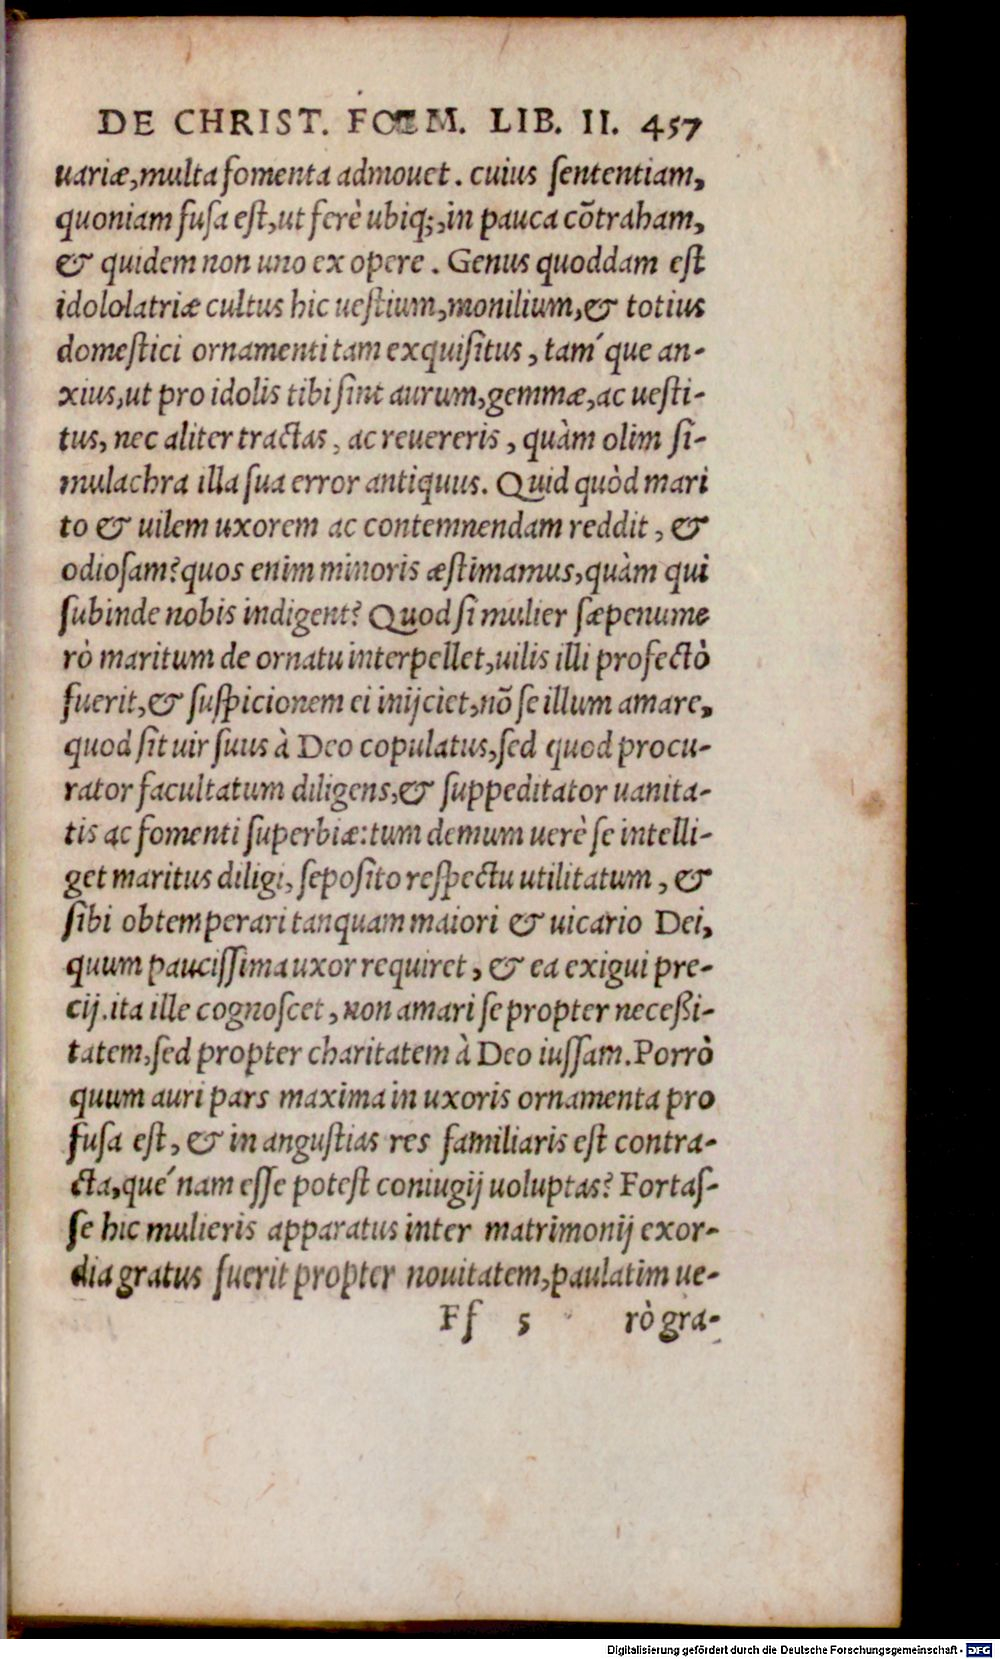 DE CHRIST. FOEM. LIB. II. 457
uariæ, multa fomenta admouet. cuius sententiam,
quoniam fusa est, ut ferè ubiq;, in pauca cõtraham,
& quidem non uno ex opere. Genus quoddam est
idololatriæ cultus hic uestium, monilium, & totius
domestici ornamenti tam exquisitus, tam´que an-
xius, ut pro idolis tibi sint aurum, gemmæ, ac uesti-
tus, nec aliter tractas, ac reuereris, quàm olim si-
mulachra illa sua error antiquus. Quid quòd mari
to & uilem uxorem ac contemnendam reddit, &
odiosam? quos enim minoris æstimamus, quàm qui
subinde nobis indigent? Quod si mulier sæpenume
rò maritum de ornatu interpellet, uilis illi profectò
fuerit, & suspicionem ei inijciet, nõ se illum amare,
quod sit uir suus à Deo copulatus, sed quod procu-
rator facultatum diligens, & suppeditator uanita-
tis ac fomenti superbiæ: tum demum uerè se intelli-
get maritus diligi, seposito respectu utilitatum, &
sibi obtemperari tanquam maiori & uicario Dei,
quum paucissima uxor requiret, & ea exigui pre-
cij. ita ille cognoscet, non amari se propter neceßi-
tatem, sed propter charitatem à Deo iussam. Porrò
quum auri pars maxima in uxoris ornamenta pro
fusa est, & in angustias res familiaris est contra-
cta, que´nam esse potest coniugij uoluptas? Fortas-
se hic mulieris apparatus inter matrimonij exor-
dia gratus fuerit propter nouitatem, paulatim ue-
Ff 5 rò gra-
Digitalisierung gefördert durch die Deutsche Forschungsgemeinschaft - DFG